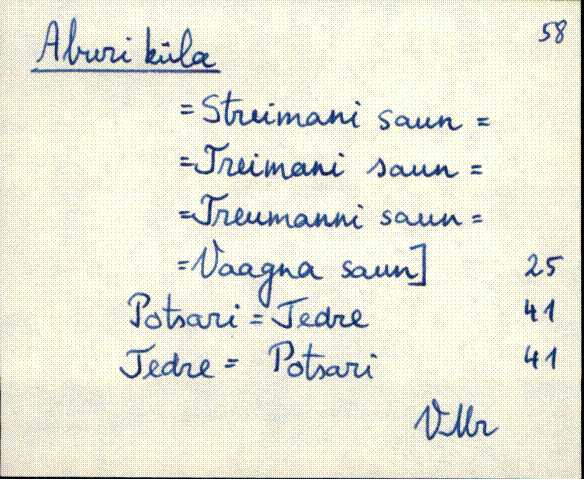 58
Aburi küla
=Streimani saun =
=Treimani saun =
=Treumanni saun =
=Vaagna saun] 25
Potsari = Tedre 41
Tedre = Potsari 41
VMr